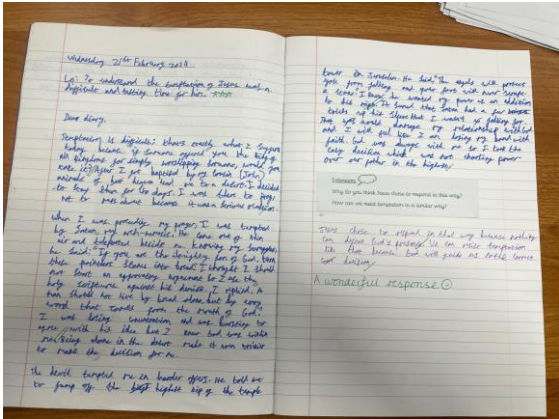 Wednesday 21st February 2024
LO: To understand the temptation of Jesus was a
difficult and testing time for him.
Dear diary,
Temptation is difficult: that's exactly what I
today because if someone offered you the king of
all kingdoms for simply worshipping someone, would you
take it? After I got baptised by my cousin (John)
of led me to a desert. I decided
to stay there for 40 days. I was there to pray
not to mess about because it was a serious occasion.
When I was my prayer, I was tempted
by Satan, my arch-nemesis. He came out of thin
air and teleported beside me. Knowing my
he said: "If you are the almighty son of God, turn
these stones into bread." I thought I should
not start an argument so I used the
holy scripture against his desires. I replied, "A
man should not live by bread alone but by every
word that comes from the mouth of God."
I was losing and was
agree with his idea but I knew God was with
me. Being alone in the desert made it even
to make the decision for me.
The devil tempted me on harder offers. He told me
to jump off the highest tip of the temple
tower in Jerusalem. He said, "The angels will protect
you from falling and your foot will never scrape
a stone. I knew he wanted my power as an
to his It seemed that Satan had a few
tricks up his sleeve that I wasn't falling for.
That was my relationship with God
and I will tell you I am my hand with
faith. God was always with me so I took the
decision which was not power
over our father in the highest.
Extension
Why do you think Jesus chose to respond in this way?
How can we resist temptation in a similar way?
Jesus chose to respond in that way because nothing
can God's We can resist temptation
like that because God will guide us to the correct
decision.
A wonderful response